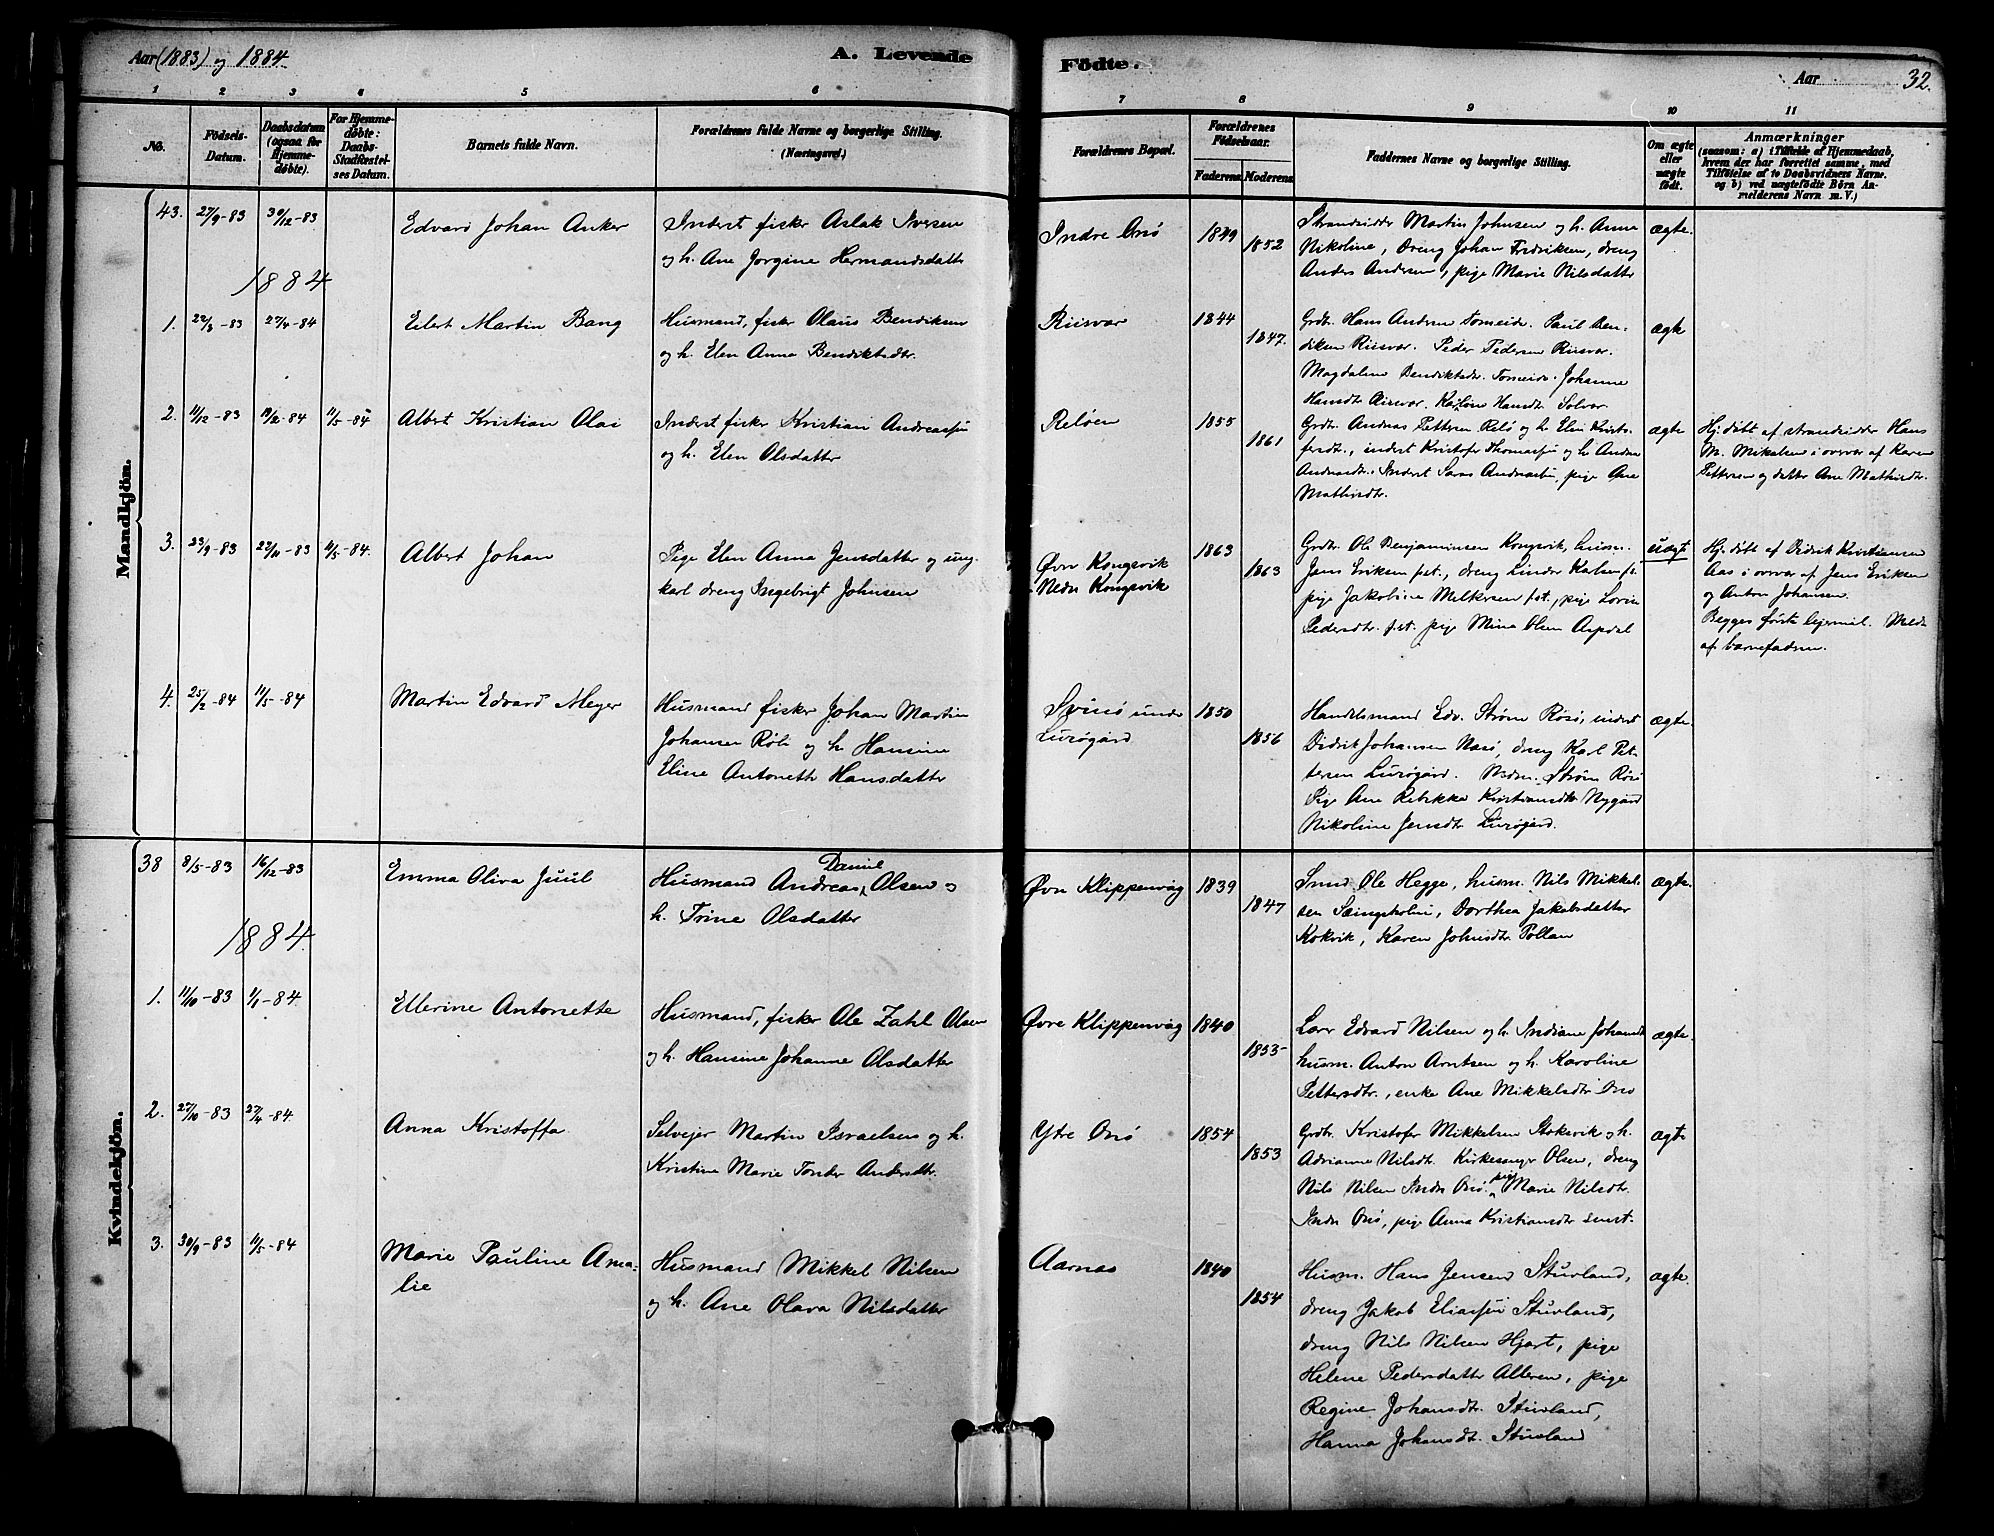 Aar (1883) og 1884
A. Levende Födte.
Aar 32.
1 2 3 4 5 6 7 8 9 10 11
No.
Födsels-Datum.
Daabsdatum (ogsaa for Hjemme-döbte).
For Hjemme-döbte: Daabs-Stadfæstel-ses Datum.
Barnets fulde Navn.
Forældrenes fulde Navne og borgerlige Stilling.
(Næringsvei.)
Forældrenes Bopæl.
Forældrenes Födselsaar.
Faderens Moderens
Faddernes Navne og borgerlige Stilling.
Om ægte eller uægte födt.
Anmærkninger
(saasom: a) i Tilfælde af Hjemmedaab,
hvem der har forrettet samme, med
Tilföielse af to Daabsvidners Navne.
og b) ved uægtefödte Börn An-
melderens Navn m. V.)
Mandkjön.
43. 27/9-83 30/12-83 Edvard Johan Anker
Inderst fisker Aslak Iversen
og h. Ane Jorgine Hermandsdatter
Indre Onø 1849 1852
Strandsidder Martin Johnsen og h. Anna
Nikoline, dreng Johan Fredriksen, dreng
Anders Andersen, pige Marie Nilsdatter
ægte.
1884
1. 22/8-83 27/4-84 Eilert Martin Bang
Husmand, fisker Olaus Bendiksen
og h. Elen Anna Bendiktsdtr.
Riisvær 1844 1847.
Grdbr. Hans Andersen Tomeide. Paul Ben-
diksen Riisvær. Peder Pedersen Riisvær.
Magdalene Bendiktsdtr. Tomeide. Johanne
Hansdtr. Riisvær. Karoline Hansdtr. Solvær.
ægte
2. 11/12-83 19/2-84 11/5-84 Albert Kristian Olai
Inderst fisker Kristian Andreassen
og h. Elen Olsdatter
Reløen 1855 1861
Grdbr. Andreas Pettersen Relø og h. Elen Kristo-
fersdtr., inderst Kristofer Thomassen og h. Andrea
Andreasdtr. Inderst Andreassen, pige Ane
Mathisdtr.
ægte
Hj.døbt af strandsidder Hans
M. Mikalsen i overvær af Karen
Pettersen og datter Ane Mathisdtr.
3. 23/9-83 23/11-83 11/5-84. Albert Johan
Pige Elen Anna Jensdatter og ung-
karl dreng Ingebrigt Johnsen
Øvre Kongsvik
Nedre Kongsvik
1863 1863
Grdbr. Ole Benjaminsen Kongsvik, husm.
Jens Eriksen sst., dreng Linder Karlsen st.
pige Jakobine Melkersen sst., pige Lovise
Pedersdtr. sst. pige Mina Olsen Aspdal
uægte
Hj.døbt af Didrik Kristiansen
Aas i overvær af Jens Eriksen
og Anton Johansen.
Begges første lejermål. Meldt
af barnefaderen.
4. 25/2-84 11/5-84 Martin Edvard Meyer
Husmand fisker Johan Martin
Johansen Røli og h. Hansine
Eline Antonette Hansdatter
Svinø under
Lurøgård
1850 1856
Handelsmand Edv. Strøm Røsø, inderst
Didrik Johansen Næsø, dreng Karl Pet-
tersen Lurøgård. Madm. Strøm Røsø
Pige Ane Rebekka Kristiansdtr Nygård
Nikoline Jensdtr Lurøgård.
ægte.
Kvindekjön.
38 8/5-83 16/12-83 Emma Oliva Juul
Husmand Andreas Daniel Olsen og
h. Trine Olsdatter
Øvre Klippenvåg 1839 1847
Smed Ole Hegge, husm. Nils Mikkel-
sen Selngsholm, Dorthea Jakobsdatter
Kokvik, Karen Johnsdtr. Pollan
ægte.
1884.
1. 11/10-83 1/1-84. Ellerine Antonette
Husmand, fisker Ole Zahl Olsen
og h. Hansine Johanne Olsdatter
Øvre Klippenvåg 1840 1853
Lærer Edvard Nilsen og h. Indiane Johansdtr
husm. Anton Arntsen og h. Karoline
Pettersdtr., enke Ane Mikkelsdtr Onø
ægte.
2. 27/10-83 27/4-84. Anna Kristoffa
Selvejer Martin Israelsen og h.
Kristine Marie Tonder Andersdtr.
Ytre Onø 1854 1853
Grdbr. Kristofer Mikkelsen Stoksvik og h.
Adrianna Nilsdtr. Kirkesanger Olsen, dreng
Nils Nilsen Indre Onø. pige Marie Nilsdtr.
Indre Onø, pige Anna Kristiansdtr smst.
ægte
3. 30/9-83 11/5-84 Marie Pauline Ama-
lie
Husmand Mikkel Nilsen
og h. Ane Olava Nilsdatter
Aarnæs 1840 1854
Husm. Hans Jensen Stuvland,
dreng Jakob Eliassen Stuvland,
dreng Nils Nilsen Hjart, pige
Helene Pedersdatter Alteren, pige
Regine Johansdtr. Stuvland,
Hanna Johansdtr. Stuvland
ægte.